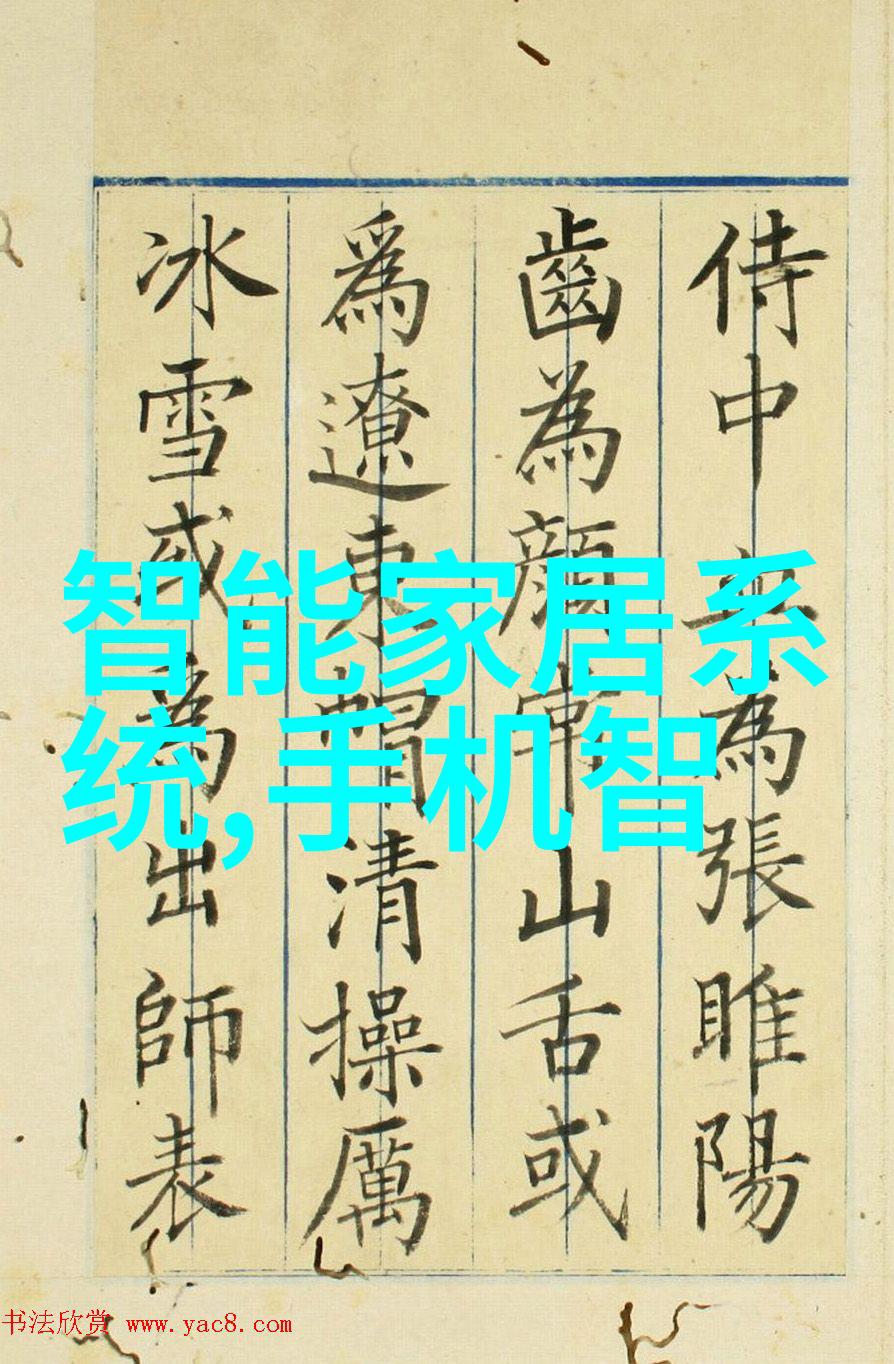 侍中為張睢陽
齒為顏常山舌或
爲遼東帽清操厲
冰雪或為出師表
智能家居系
统,手机智
书法欣赏 www.yac8.com